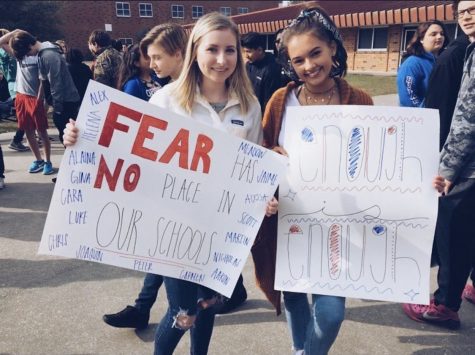 FEAR HAS
NO PLACE IN
OUR SCHOOLS
ALEX
HELENA
ALAINA
GINA
CARA
LUKE
CHRIS
JOAQUIN
PETER
CARMEN
MEADOW
JAIME
SCOTT
MARTIN
NICHOLAS
AARON
enough
is
enough